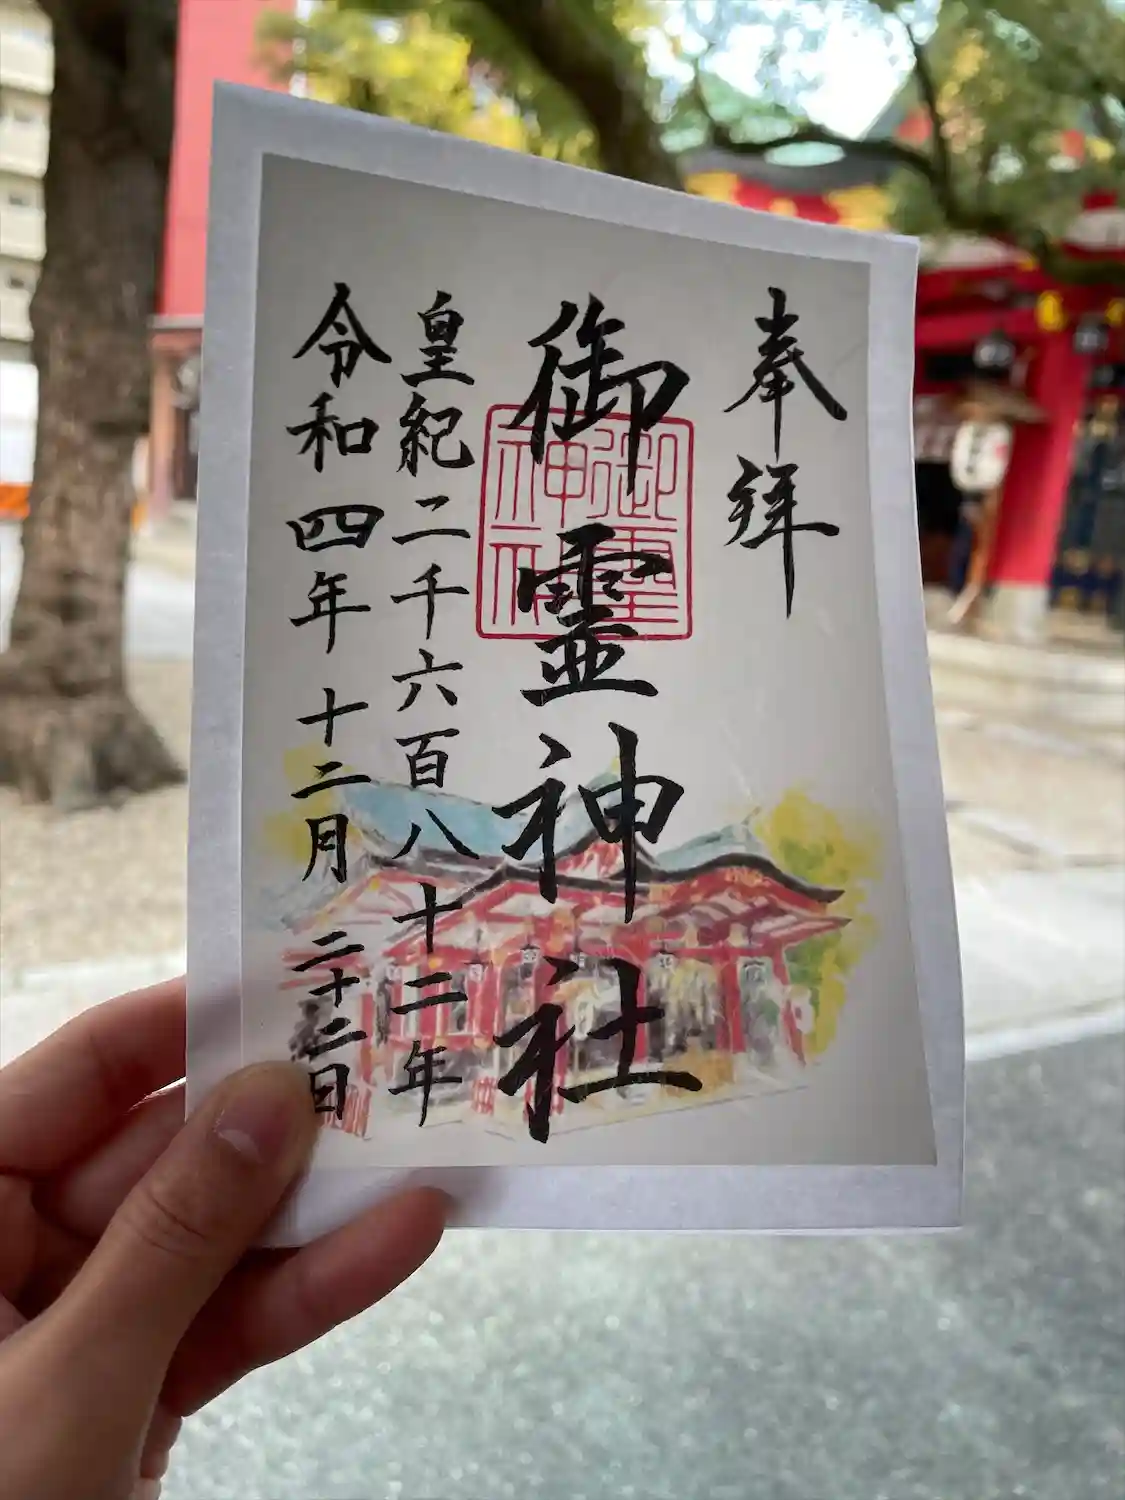 奉拝
御靈神社
御靈神社
皇紀二千六百八十二年
令和四年 十二月 二十二日